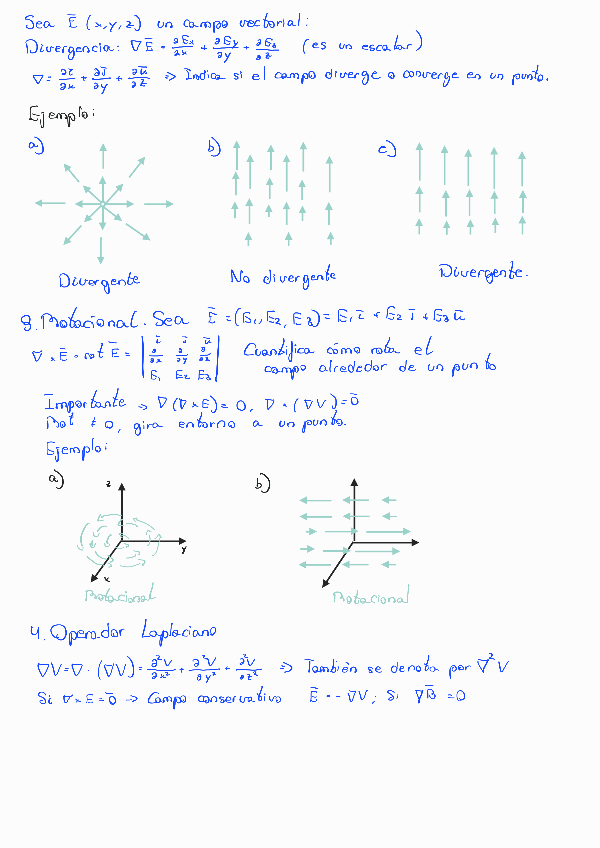 Sea Ē (x,y,z) un campo vectorial:
Divergencia: ∇Ē = ∂Ex/∂x + ∂Ey/∂y + ∂Ez/∂z (es un escalar)
∇ = ∂ī/∂x + ∂j̄/∂y + ∂ū/∂z => Indica si el campo diverge o converge en un punto.
Ejemplo:
a) b) c)
Divergente No divergente Divergente.
3. Rotacional. Sea Ē = (E1, E2, E3) = E1 ī + E2 j̄ + E3 ū
∇ × Ē = rot Ē = | ī j̄ ū | Cuantifica cómo rota el
∂/∂x ∂/∂y ∂/∂z campo alrededor de un punto
E1 E2 E3
Importante => ∇(∇×E) = 0, ∇ × (∇V) = 0̄
Rot ≠ 0, gira entorno a un punto.
Ejemplo:
a) b)
z
y
x
Rotacional Rotacional
4. Operador Laplaciano
∇V = ∇ · (∇V) = ∂²V/∂x² + ∂²V/∂y² + ∂²V/∂z² => También se denota por ∇²V
Si ∇×E = 0̄ -> Campo conservativo Ē = -∇V; Si ∇B̄ = 0